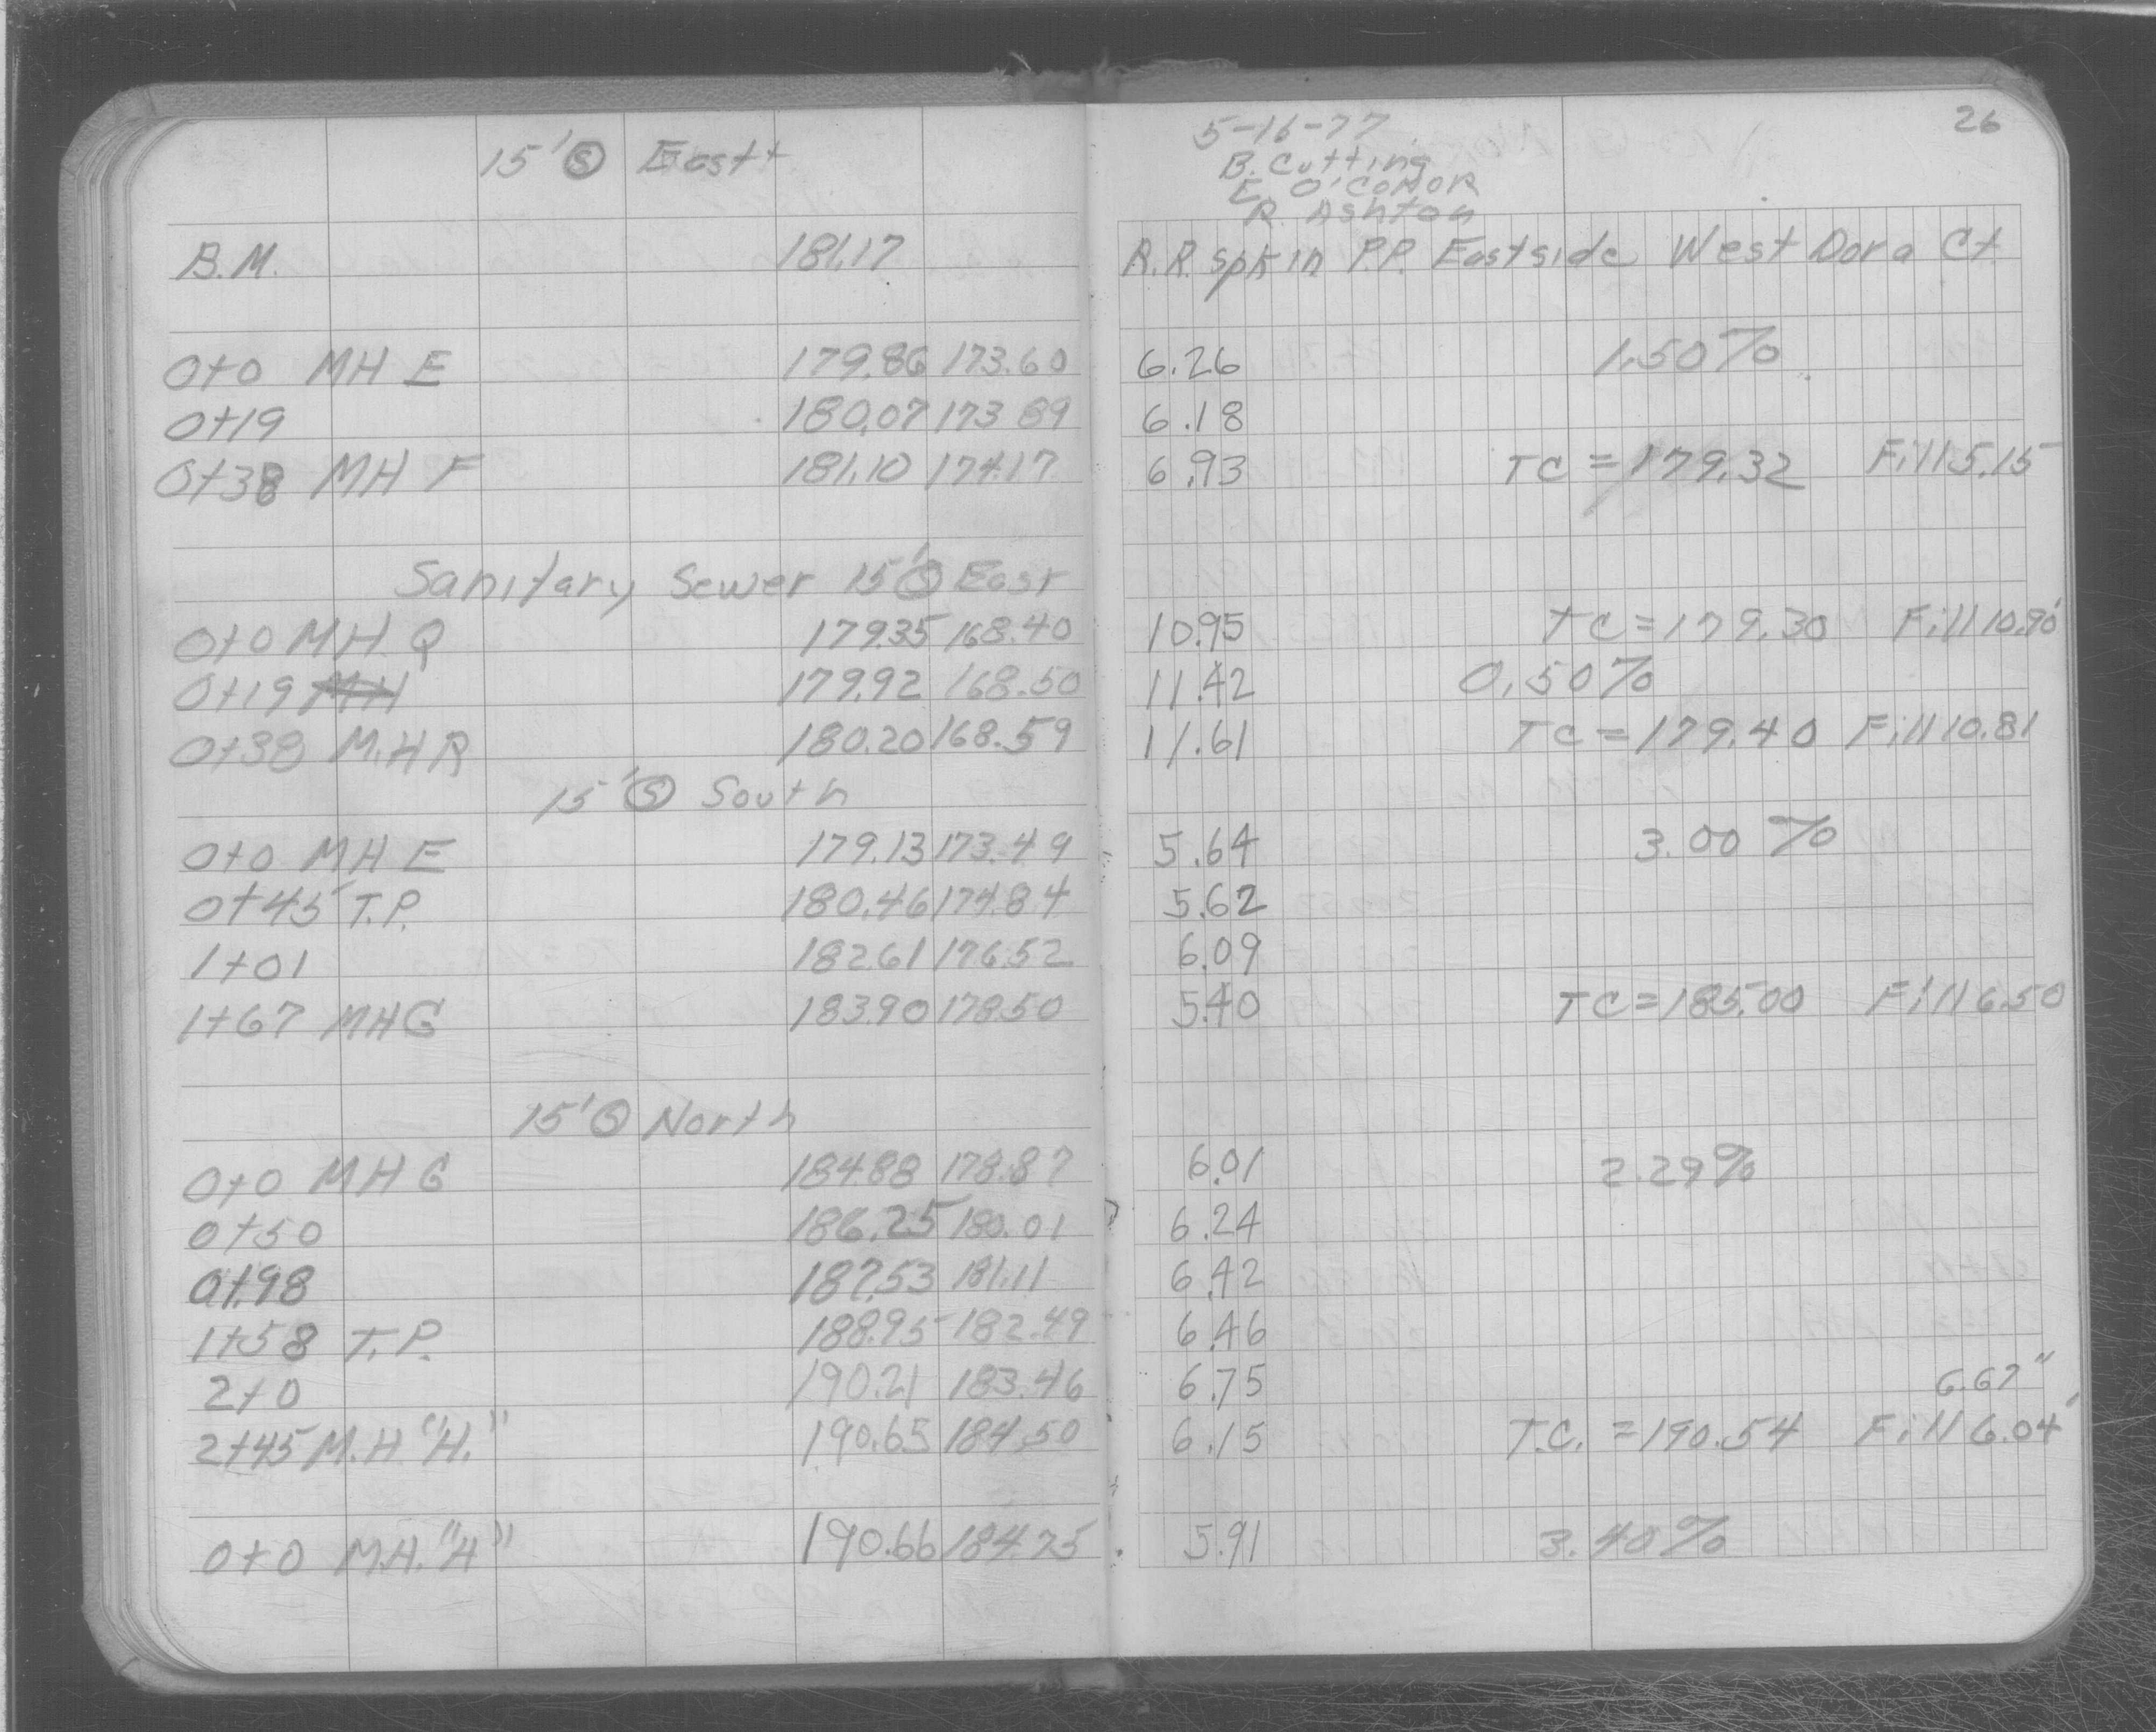 26
5-16-77
B. Cutting
E. O'Conor
R. Ashton
15' Ⓢ East
B.M. 181.17 R.R. Spk in P.P. Eastside West Dora Ct.
0+0 MH E 179.86 173.60 6.26 1.50%
0+19 180.07 173.89 6.18
0+38 MH F 181.10 174.17 6.93 TC = 179.32 Fill 5.15
Sanitary Sewer 15' Ⓢ East
0+0 MH Q 179.35 168.40 10.95 TC = 179.30 Fill 10.90'
0+19 MH 179.92 168.50 11.42 0.50%
0+38 M.H R 180.20 168.59 11.61 TC = 179.40 Fill 10.81
15' Ⓢ South
0+0 MH E 179.13 173.49 5.64 3.00%
0+45 T.P. 180.46 174.84 5.62
1+01 182.61 176.52 6.09
1+67 MHG 183.90 178.50 5.40 TC = 185.00 Fill 6.50
15' Ⓢ North
0+0 MH G 184.88 178.87 6.01 2.29%
0+50 186.25 180.01 6.24
0+98 187.53 181.11 6.42
1+58 T.P. 188.95 182.49 6.46
2+0 190.21 183.46 6.75 6.67"
2+45 M.H. "H." 190.65 184.50 6.15 T.C. = 190.54 Fill 6.04'
0+0 M.H. "H" 190.66 184.75 5.91 3.40%